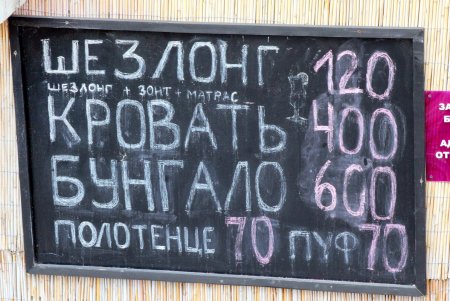 ШЕЗЛОНГ 120
ШЕЗЛОНГ + ЗОНТ + МАТРАС
КРОВАТЬ 400
БУНГАЛО 600
ПОЛОТЕНЦЕ 70 ПУФ 70